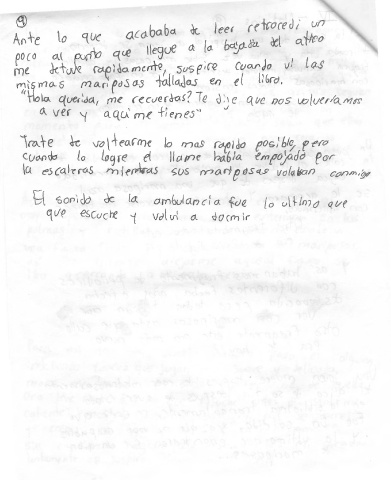 9
Ante lo que acababa de leer retrocedi un
poco al punto que llegue a la bajada del attico
me detuve rapidamente, suspire cuando vi las
mismas mariposas talladas en el libro.
"Hola querida, me recuerdas? Te dije que nos volveriamos
a ver y aqui me tienes"
Trate de voltearme lo mas rapido posible, pero
cuando lo logre el llame habia empojado por
la escaleras mientras sus mariposas volaban conmigo
El sonido de la ambulancia fue lo ultimo que
que escuche y volvi a dormir